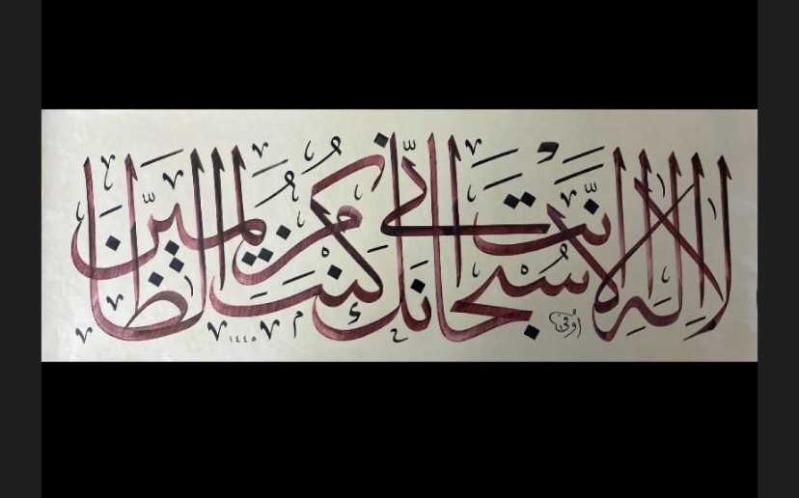 لا اله الا انت سبحانك اني كنت من الظالمين
١٤٤٥